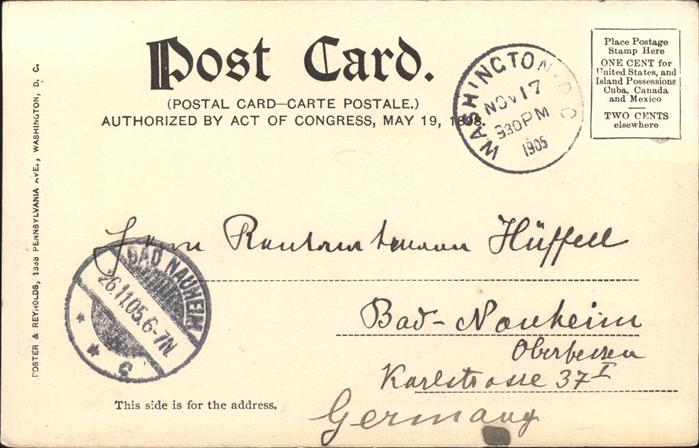 Post Card.
(POSTAL CARD—CARTE POSTALE.)
AUTHORIZED BY ACT OF CONGRESS, MAY 19, 1898.
WASHINGTON, D.C.
NOV 17
930 PM
1905
Place Postage
Stamp Here
ONE CENT for
United States, and
Island Possessions
Cuba, Canada
and Mexico
TWO CENTS
elsewhere
FOSTER & REYNOLDS, 1333 PENNSYLVANIA AVE., WASHINGTON, D. C.
Herrn Hüffell
BAD NAUHEIM
26.11.05.6-7N.
* * c
Bad-Nauheim
Oberhessen
Karlstrasse 37 I
Germany
This side is for the address.